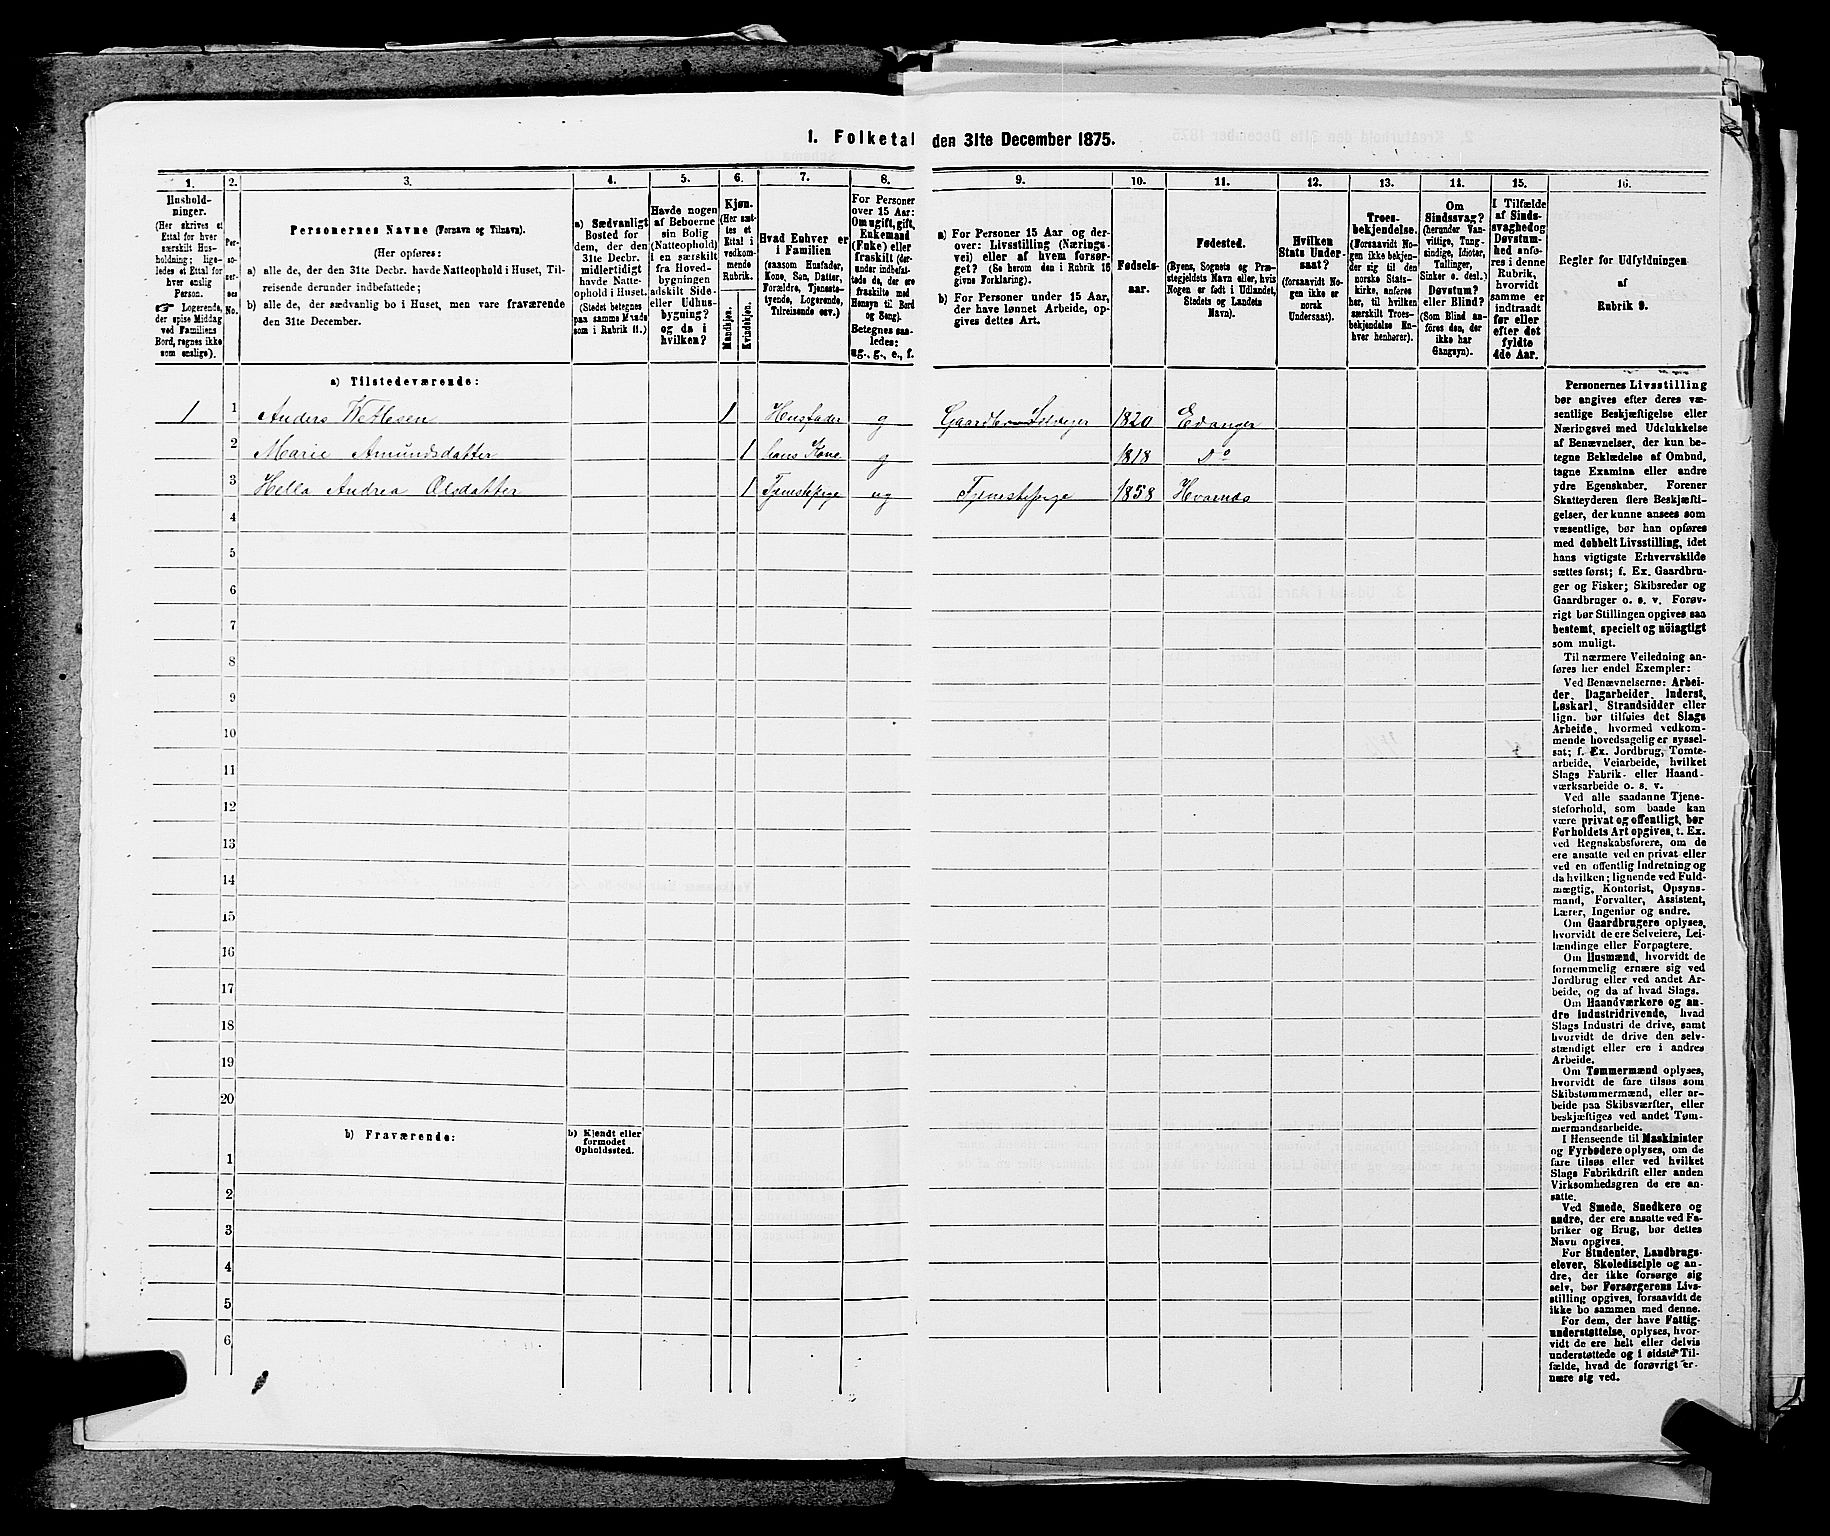 1. Folketal den 31te December 1875.
1. 2. 3. 4. 5. 6. 7. 8. 9. 10. 11. 12. 13. 14. 15. 16.
Husholdninger.
(Her skrives et
Ettal for hver
særskilt Husholdning; ligeledes et Ettal for
hver enslig
Person.
Logerende,
der spise Middag
ved Familiens
Bord, regnes ikke
som enslige).
Personernes No.
Personernes Navne (Fornavn og Tilnavn).
(Her opføres:
a) alle de, der den 31te Decbr. havde Natteophold i Huset, Tilreisende derunder indbefattede;
b) alle de, der sædvanlig bo i Huset, men vare fraværende
den 31te December.
a) Sædvanligt
Bosted for
dem, der den
31te Decbr.
midlertidigt
havde Natteophold i Huset.
(Stedet betegnes
paa samme Maade
som i Rubrik 11.)
Havde nogen
af Beboerne
sin Bolig
(Natteophold)
i en særskilt
fra Hovedbygningen
adskilt Side
eller Udhusbygning?
og da i
hvilken?
Kjøn.
(Her sættes et
Ettal i
vedkommende
Rubrik.
Mandskjøn.
Kvindekjøn.
Hvad Enhver er
i Familien
(saasom Husfader,
Kone, Søn, Datter,
Forældre, Tjenestetyende, Logerende,
Tilreisende osv.)
For Personer
over 15 Aar:
Om ugift, gift,
Enkemand
(Enke) eller
fraskilt (derunder indbefattede de, der ere
fraskilte med
Hensyn til Bord
og Seng).
Betegnes saaledes:
ug., g., e., f.
a) For Personer 15 Aar og derover: Livsstilling (Næringsvei) eller af hvem forsørget? (Se herom den i Rubrik 16
givne Forklaring).
b) For Personer under 15 Aar,
der have lønnet Arbeide, opgives dettes Art.
Fødselsaar.
Fødested.
(Byens, Sognets og Præstegjeldets Navn eller, hvis
Nogen er født i Udlandet,
Stedets og Landets
Navn).
Hvilken
Stats Undersaat?
(forsaavidt Nogen ikke er
norsk
Undersaat).
Troesbekjendelse.
(Forsaavidt Nogen ikke bekjender sig til den
norske Statskirke, anføres
her, til hvilken
særskilt Troesbekjendelse Enhver henhører).
Om
Sindssvag?
(herunder Vanvittige, Tungsindige, Idioter,
Tullinger,
Sinker o. desl.)
Døvstum?
eller Blind?
(Som Blind anføres den, der
ikke har
Gangsyn).
I Tilfælde
af Sindssvaghed og
Døvstumhed anføres i denne
Rubrik,
hvorvidt
samme er
indtraadt
før eller
efter det
fyldte
4de Aar.
Regler for Udfyldningen
af
Rubrik 9.
a) Tilstedeværende:
1 1 Anders Wetlesen 1 Husfader g 1820 Edanger
2 Marie Amundsdatter 1 hans Kone g 1818 Do
3 Hella Andrea Olsdatter 1 Tjenestepige ug Tjenestepige 1858 Hvarnes
4
5
6
7
8
9
10
11
12
13
14
15
16
17
18
19
20
b) Fraværende: b) Kjendt eller
formodet
Opholdssted.
1
2
3
4
5
6
Personernes Livsstilling
bør angives efter deres væsentlige Beskjæftigelse eller
Næringsvei med Udelukkelse
af Benævnelser, der kun betegne Beklædelse af Ombud,
tagne Examina eller andre
ydre Egenskaber. Forener
Skatteyderen flere Beskjæftigelser, der kunne ansees som
væsentlige, bør han opføres
med dobbelt Livsstilling, idet
hans vigtigste Erhvervskilde
sættes først; f. Ex. Gaardbruger og Fisker; Skibsreder og
Gaardbruger o. s. v. Forøvrigt bør Stillingen opgives saa
bestemt, specielt og nöiagtigt
som muligt.
Til nærmere Veiledning anføres her endel Exempler:
Ved Benævnelserne: Arbeider, Dagarbeider, Inderst,
Løskarl, Strandsidder eller
lign. bør tilføies det Slags
Arbeide, hvormed vedkommende hovedsagelig er sysselsat; f. Ex. Jordbrug, Tomtearbeide, Veiarbeide, hvilket
Slags Fabrik- eller Haandværksarbeide o. s. v.
Ved alle saadanne Tjenesteforhold, som baade kan
være privat og offentligt, bør
Forholdets Art opgives, t. Ex.
ved Regnskabsførere, om de
ere ansatte ved en privat eller
ved en offentlig Indretning og
da hvilken; lignende ved Fuldmægtig, Kontorist, Opsynsmand, Forvalter, Assistent,
Lærer, Ingeniør og andre.
Om Gaardbrugere oplyses,
hvorvidt de ere Selveiere, Leilændinge eller Forpagtere.
Om Husmænd, hvorvidt de
fornemmelig ernære sig ved
Jordbrug eller ved andet Arbeide, og da af hvad Slags.
Om Haandværkere og andre Industridrivende, hvad
Slags Industri de drive, samt
hvorvidt de drive den selvstændigt eller ere i andres
Arbeide.
Om Tømmermænd oplyses,
hvorvidt de fare tilsøs som
Skibstømmermænd, eller arbeide paa Skibsværfter, eller
beskjæftiges ved andet Tømmermandsarbeide.
I Henseende til Maskinister
og Fyrbødere oplyses, om de
fare tilsøs eller ved hvilket
Slags Fabrikdrift eller anden
Virksomhedsgren de ere ansatte.
Ved Smede, Snedkere og
andre, der ere ansatte ved Fabriker og Brug, bør dettes
Navn opgives.
For Studenter, Landbrugselever, Skoledisciple og andre, der ikke forsørge sig
selv, bør Forsørgerens Livsstilling opgives, forsaavidt de
ikke bo sammen med denne.
For dem, der have Fattigunderstøttelse, oplyses, hvorvidt de ere helt eller delvis
understøttede og i sidste Tilfælde, hvad de forøvrigt ernære sig ved.